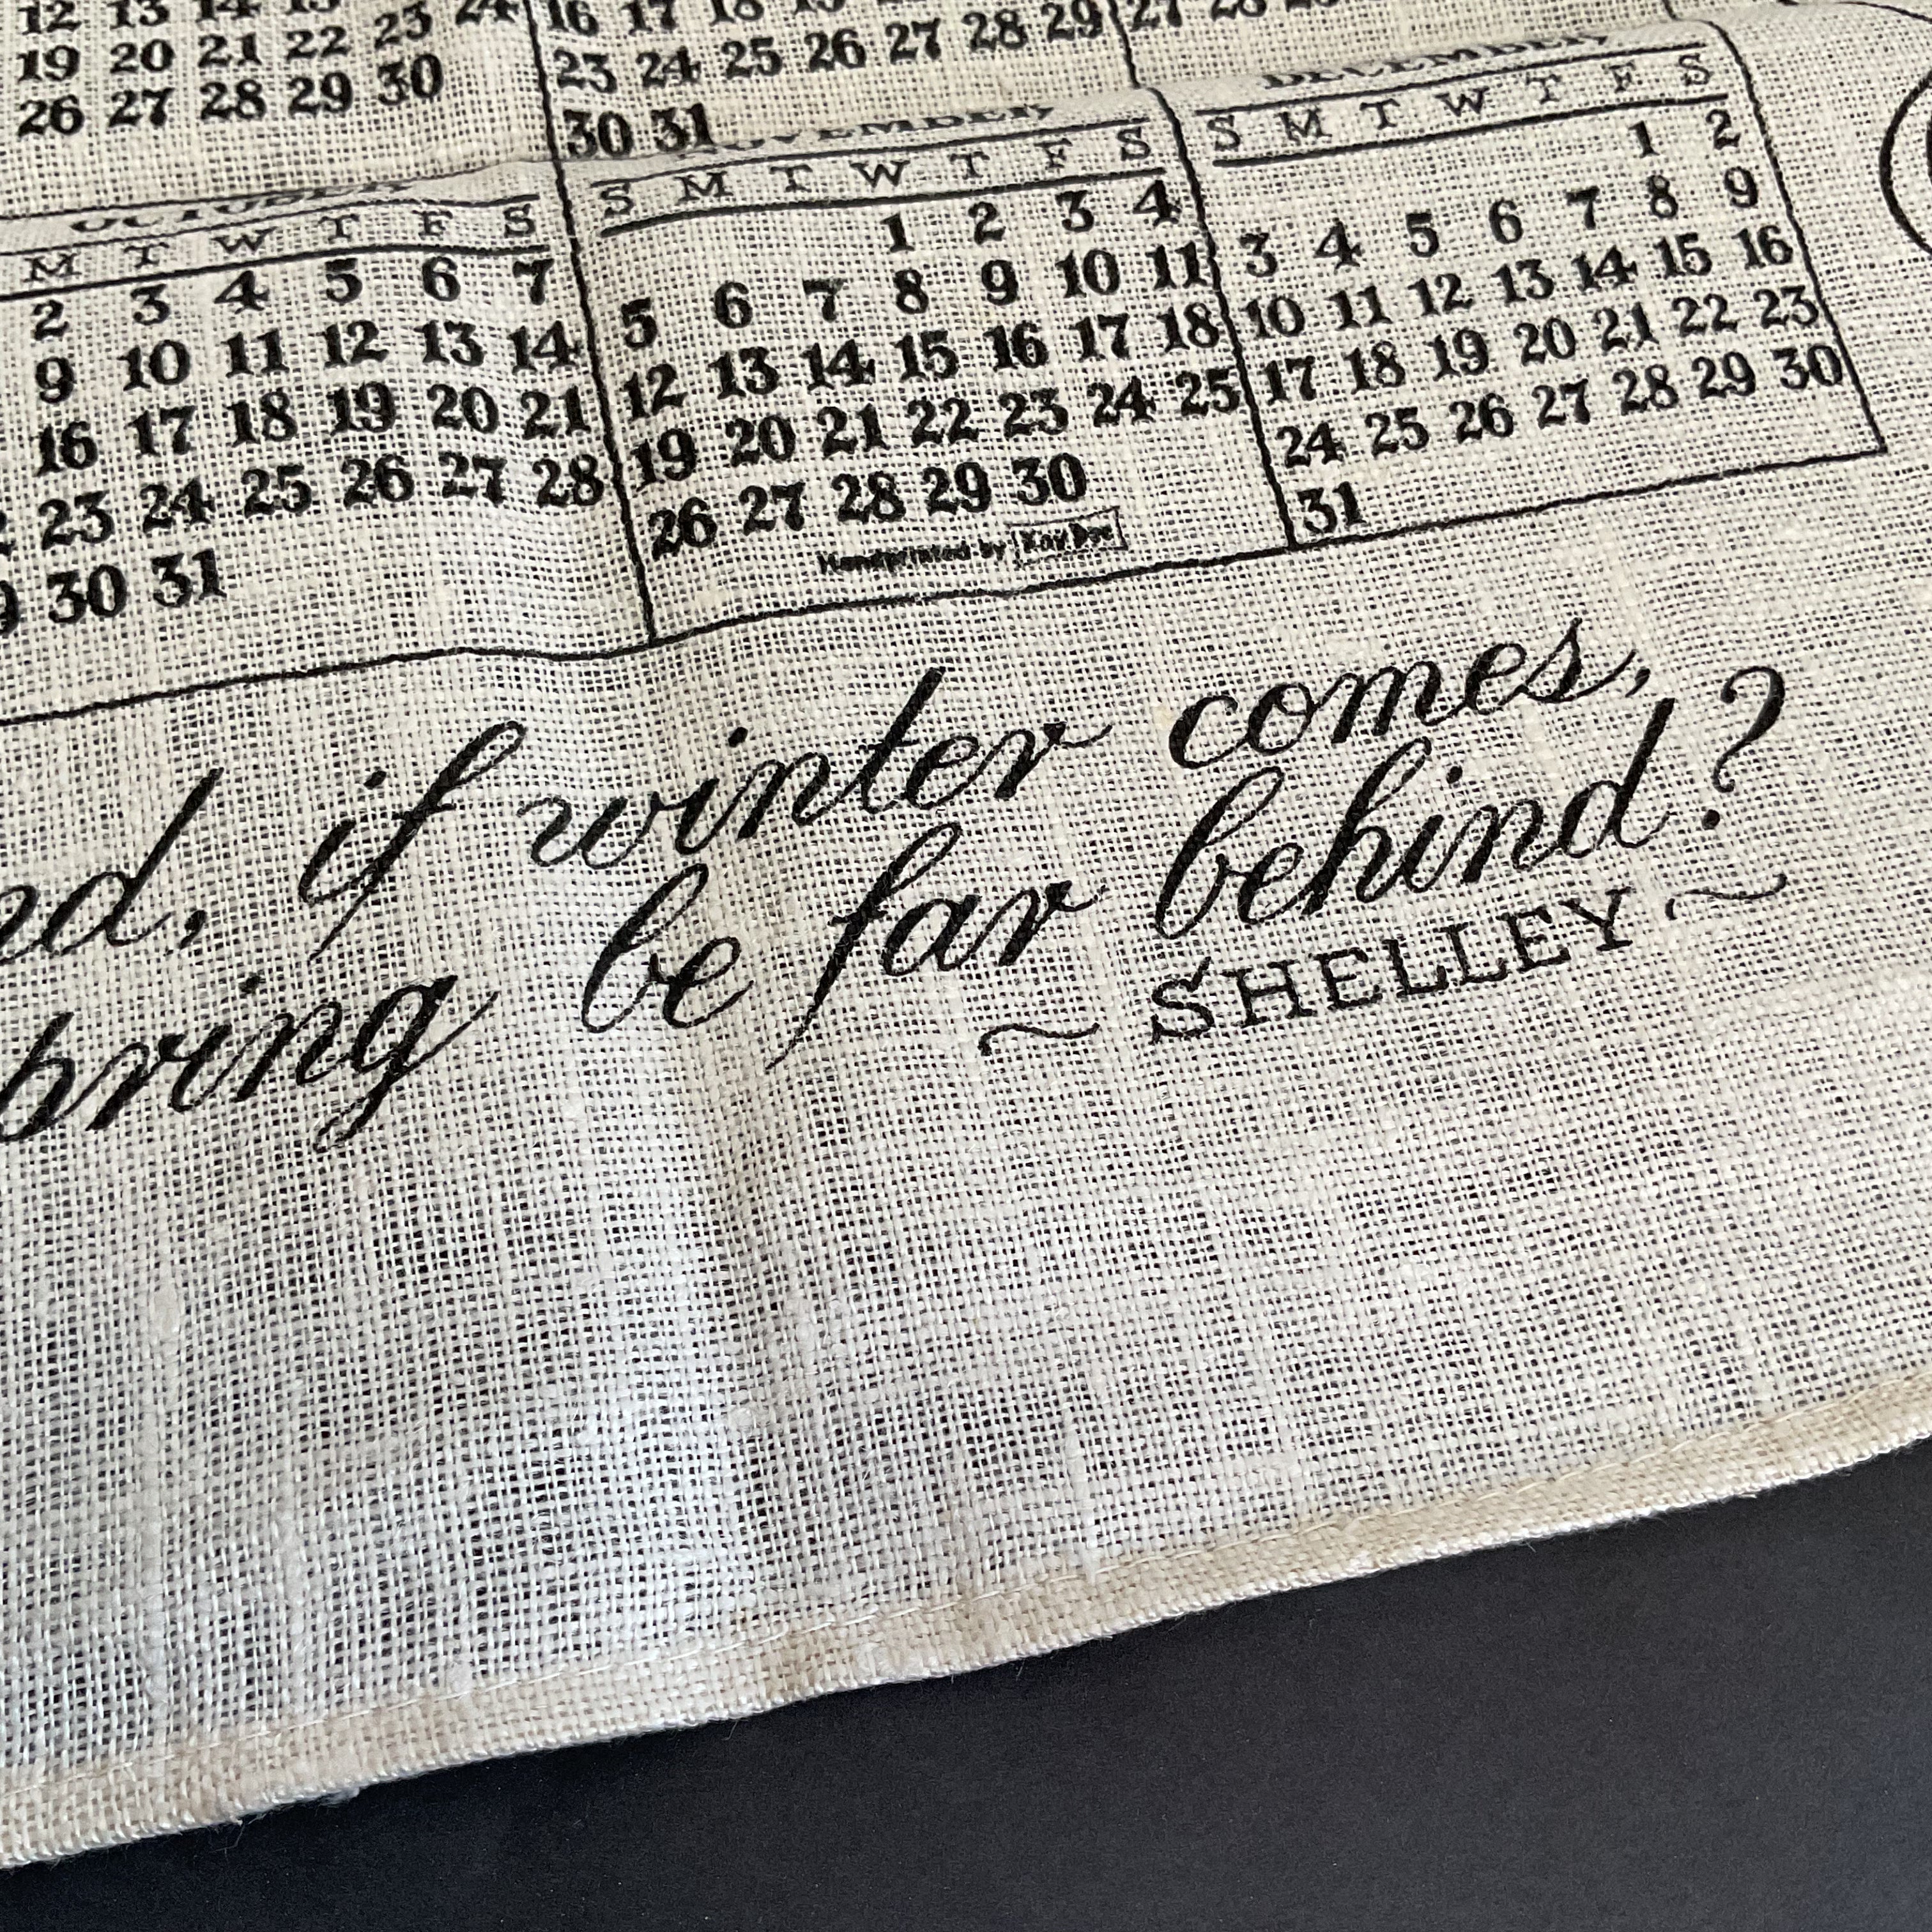 12 13 14 15 24
19 20 21 22 23
26 27 28 29 30
16 17 18
23 24 25 26 27 28 29
30 31
27 28
OCTOBER
M T W T F S
2 3 4 5 6 7
9 10 11 12 13 14
16 17 18 19 20 21
23 24 25 26 27 28
30 31
NOVEMBER
S M T W T F S
1 2 3 4
5 6 7 8 9 10 11
12 13 14 15 16 17 18
19 20 21 22 23 24 25
26 27 28 29 30
Handprinted by Kay Dee
DECEMBER
S M T W T F S
1 2
3 4 5 6 7 8 9
10 11 12 13 14 15 16
17 18 19 20 21 22 23
24 25 26 27 28 29 30
31
nd, if winter comes,
pring be far behind?
~ SHELLEY ~